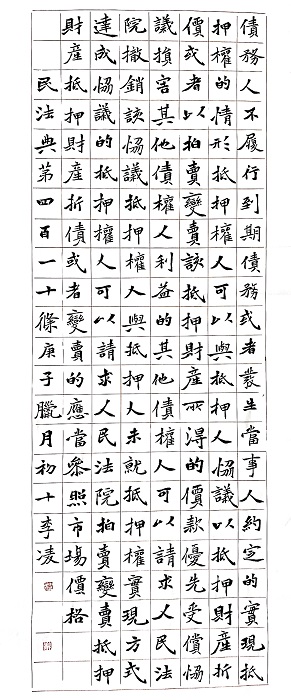 債務人不履行到期債務或者發生當事人約定的實現抵
押權的情形抵押權人可以與抵押人協議以抵押財產折
價或者以拍賣變賣該抵押財產所得的價款優先受償協
議損害其他債權人利益的其他債權人可以請求人民法
院撤銷該協議抵押權人與抵押人未就抵押權實現方式
達成協議的抵押權人可以請求人民法院拍賣變賣抵押
財產抵押財產折債或者變賣的應當參照市場價格
民法典第四百一十條庚子臘月初十李凌